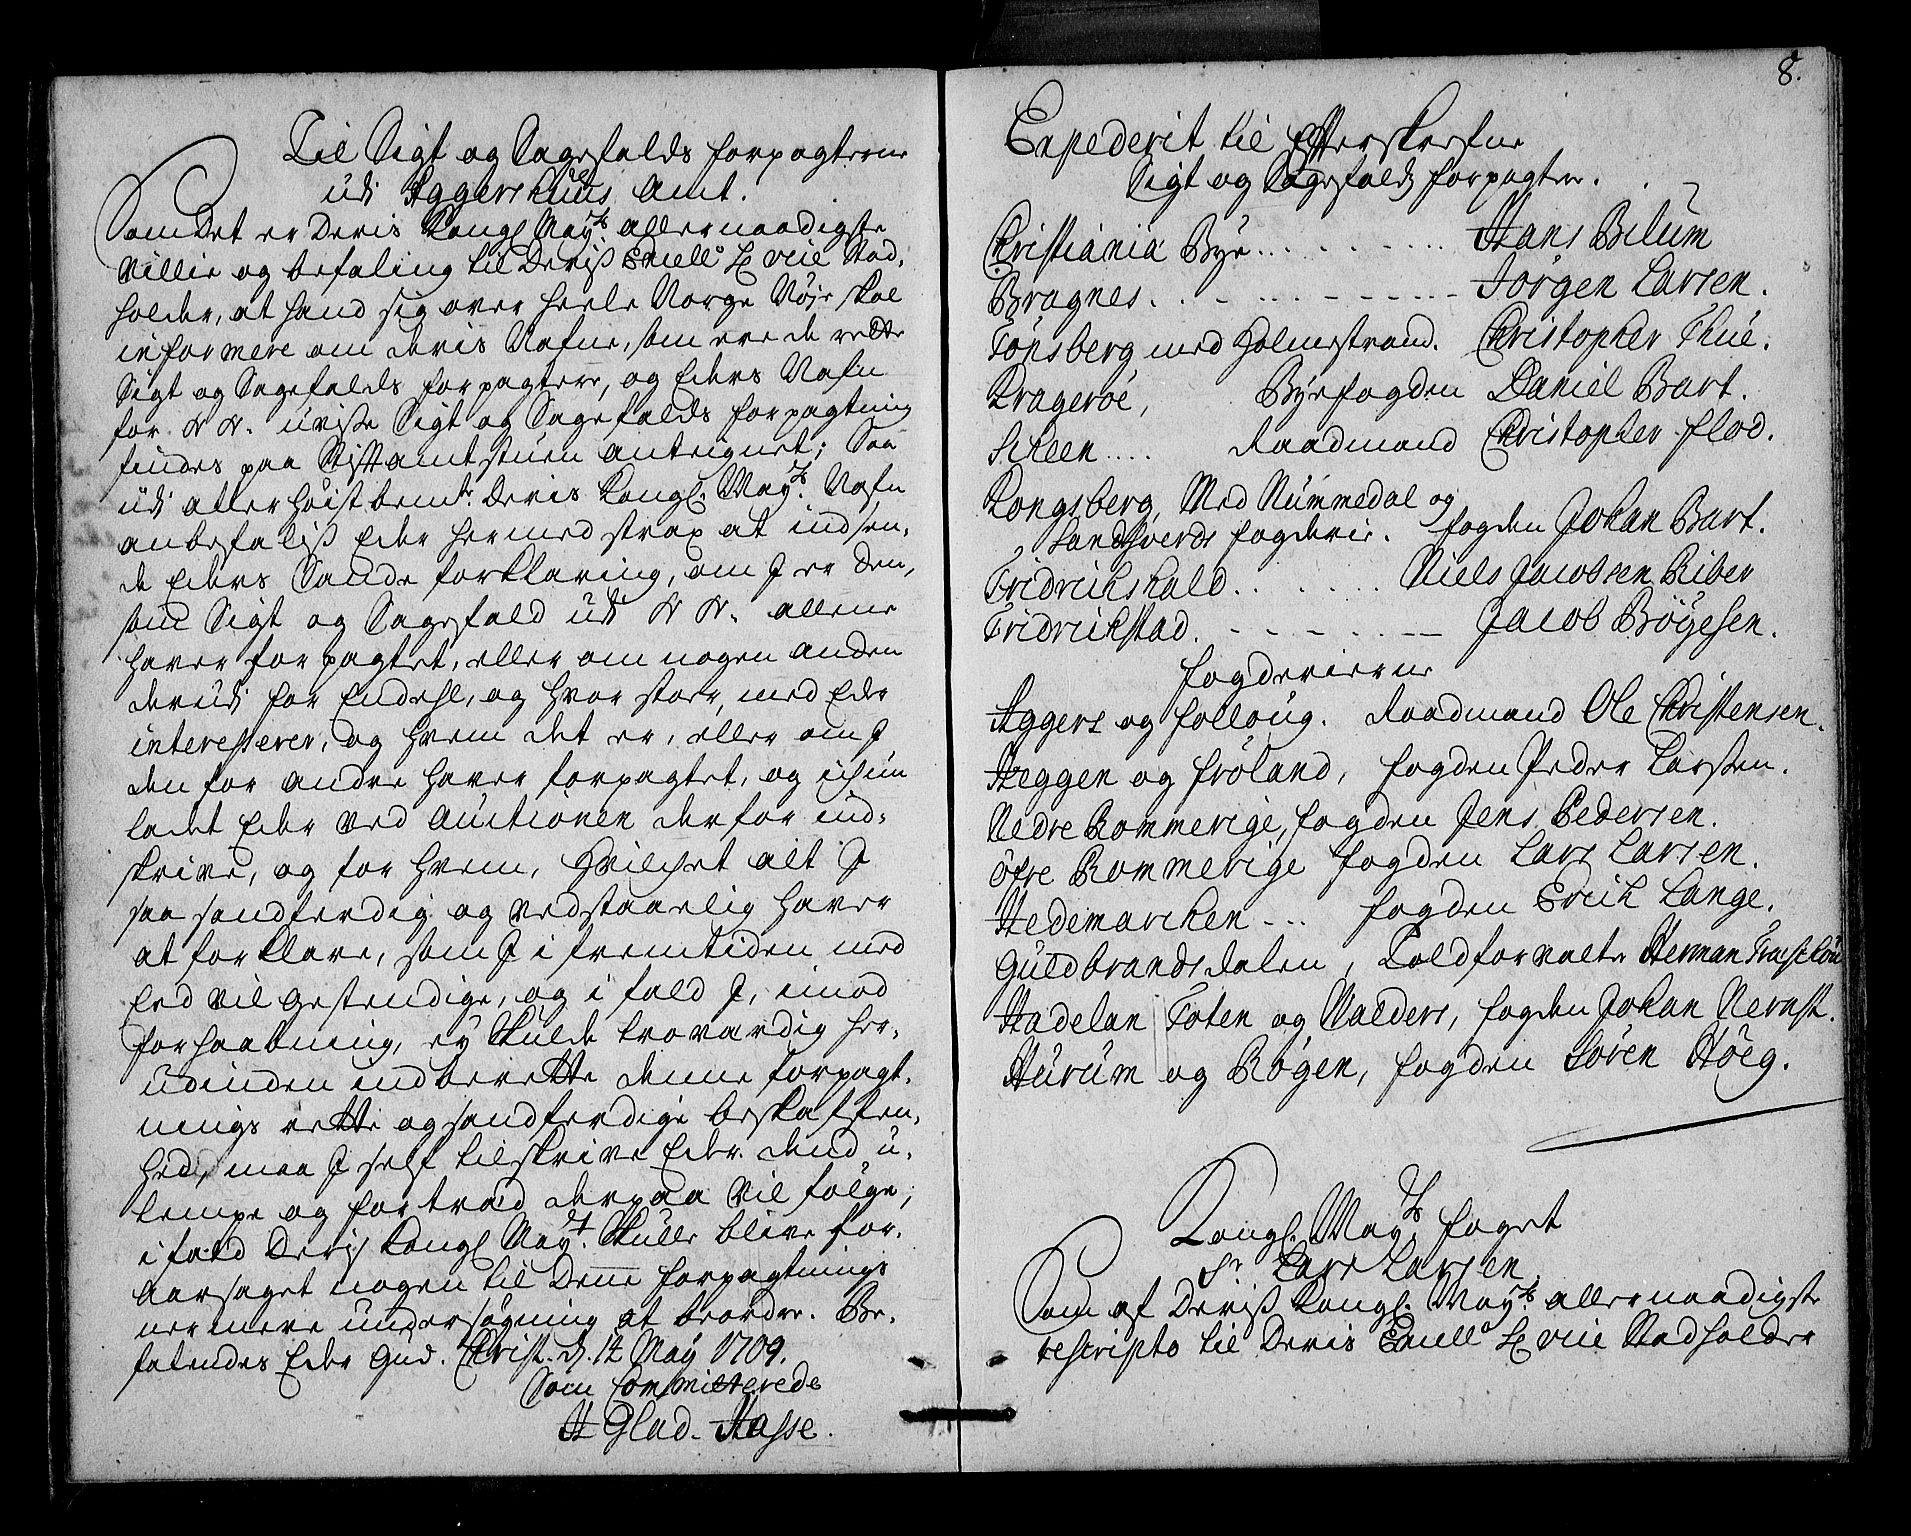 Til Sigt og Sagefalds forpagterne
udi Aggershuus Amt.
Som Det er Deris Kongl May.ts allernaadigste
Villie og befaling til Deriß Excell. H vice Stad,
holder, at hand sig over heele Norge Nøje skal
informere om deris Nafne, som ere de rette
Sigt og Sagefalds forpagtere, og Eders Nafn
for N N. uviste Sigt og Sagefalds forpagtning
findes paa Stiftamtstuen antegnet; Saa
udi allerhøist bemte. Deris Kongl. May.ts Nafn
anbefaliß Eder hermed strax at indsen,
de Eders Sande forklaring, om I er den,
som Sigt og Sagefald udi N N. allene
haver forpagtet, eller om nogen anden
derudi for Endehl, og hvor stor, med Eder
interesserer, og hvem det er, eller om I
den for andre haver forpagtet, og ichun
ladet Eder ved Auctionen derfor ind,
skrive, og for hvem, Hvilchet alt I
saa sandferdig og vedstaaelig haver
at forklare, som I i fremtiden med
Eed vil gestendige, og i fald I, imod
forhaabning, ey skulde troværdig her,
udinden indberette denne forpagt,
nings rette og sandferdige beskaffen,
hed, maa I self tilskrive Eder dend u,
lempe og fortræd derpaa vil følge,
i fald Deris Kongl May.t. Skulle blive for,
aarsaget nogen til Denne forpagtnings
nermere undersøgning at beordre. Be,
falendes Eder Gud. Christ. d. 14 May 1709.
Som Committerede
H Glad. Hasse.
8.
Expederit til Efterskrefne
Sigt og Sagefalds forpagtere.
Christiania Bye.. . . . . . . . . Hans Blum
Bragnes. . . . . . . . . . . Jørgen Larsen.
Tønsberg med Holmestrand. Christopher Thue.
Kragerøe, Byefogden Daniel Bart.
Scheen.... Raadmand Christopher Flod.
Kongsberg, Med Nummedal og
Sandsverds fogderie. fogden Johan Bart.
Fridrikshald. . . . . . . Niels Jacobsen Riber
Fridrikstad. - - - - - - Jacob Bøgesen.
fogderierne
Aggers og Folloug. Raadmand Ole Christensen.
Heggen og Frøland, fogden Peder Larssen.
Nedre Rommerige, fogden Jens Pedersen.
Øfre Rommerige fogden Lars Larsen.
Hedemarchen - .. fogden Erich Lange.
Guldbrandsdalen, Toldforvalter Herman
Hadelan Toten og Valders, fogden Johan Nernst.
Hurum og Røgen, fogden Søren Høeg.
Kongl. May.ts foget
Sr Lars Larsen
Som af Deriß Kongl. May.ts allernaadigste
rescripto til Deris Excell H vice Stadholder